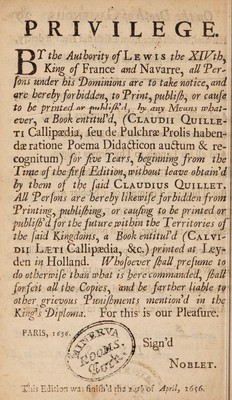 PRIVILEGE.
BY the Authority of LEWIS the XIVth,
King of France and Navarre, all Per-
sons under his Dominions are to take notice, and
are hereby forbidden, to Print, publish, or cause
to be printed or publish'd, by any Means what-
ever, a Book entitul'd, (CLAUDII QUILLE-
TI Callipædia, seu de Pulchræ Prolis haben-
dæ ratione Poema Didacticon auctum & re-
cognitum) for five Years, beginning from the
Time of the first Edition, without leave obtain'd
by them of the said CLAUDIUS QUILLET.
All Persons are hereby likewise forbidden from
Printing, publishing, or causing to be printed or
publish'd for the future within the Territories of
the said Kingdoms, a Book entitul'd (CALVI-
DII LÆTI Callipædia, &c.) printed at Ley-
den in Holland. Whosoever shall presume to
do otherwise than what is here commanded, shall
forfeit all the Copies, and be farther liable to
other grievous Punishments mention'd in the
King's Diploma. For this is our Pleasure.
PARIS, 1656.
MINERVA
Rooms.
Cork
Sign'd
NOBLET.
This Edition was finish'd the 24th of April, 1656.